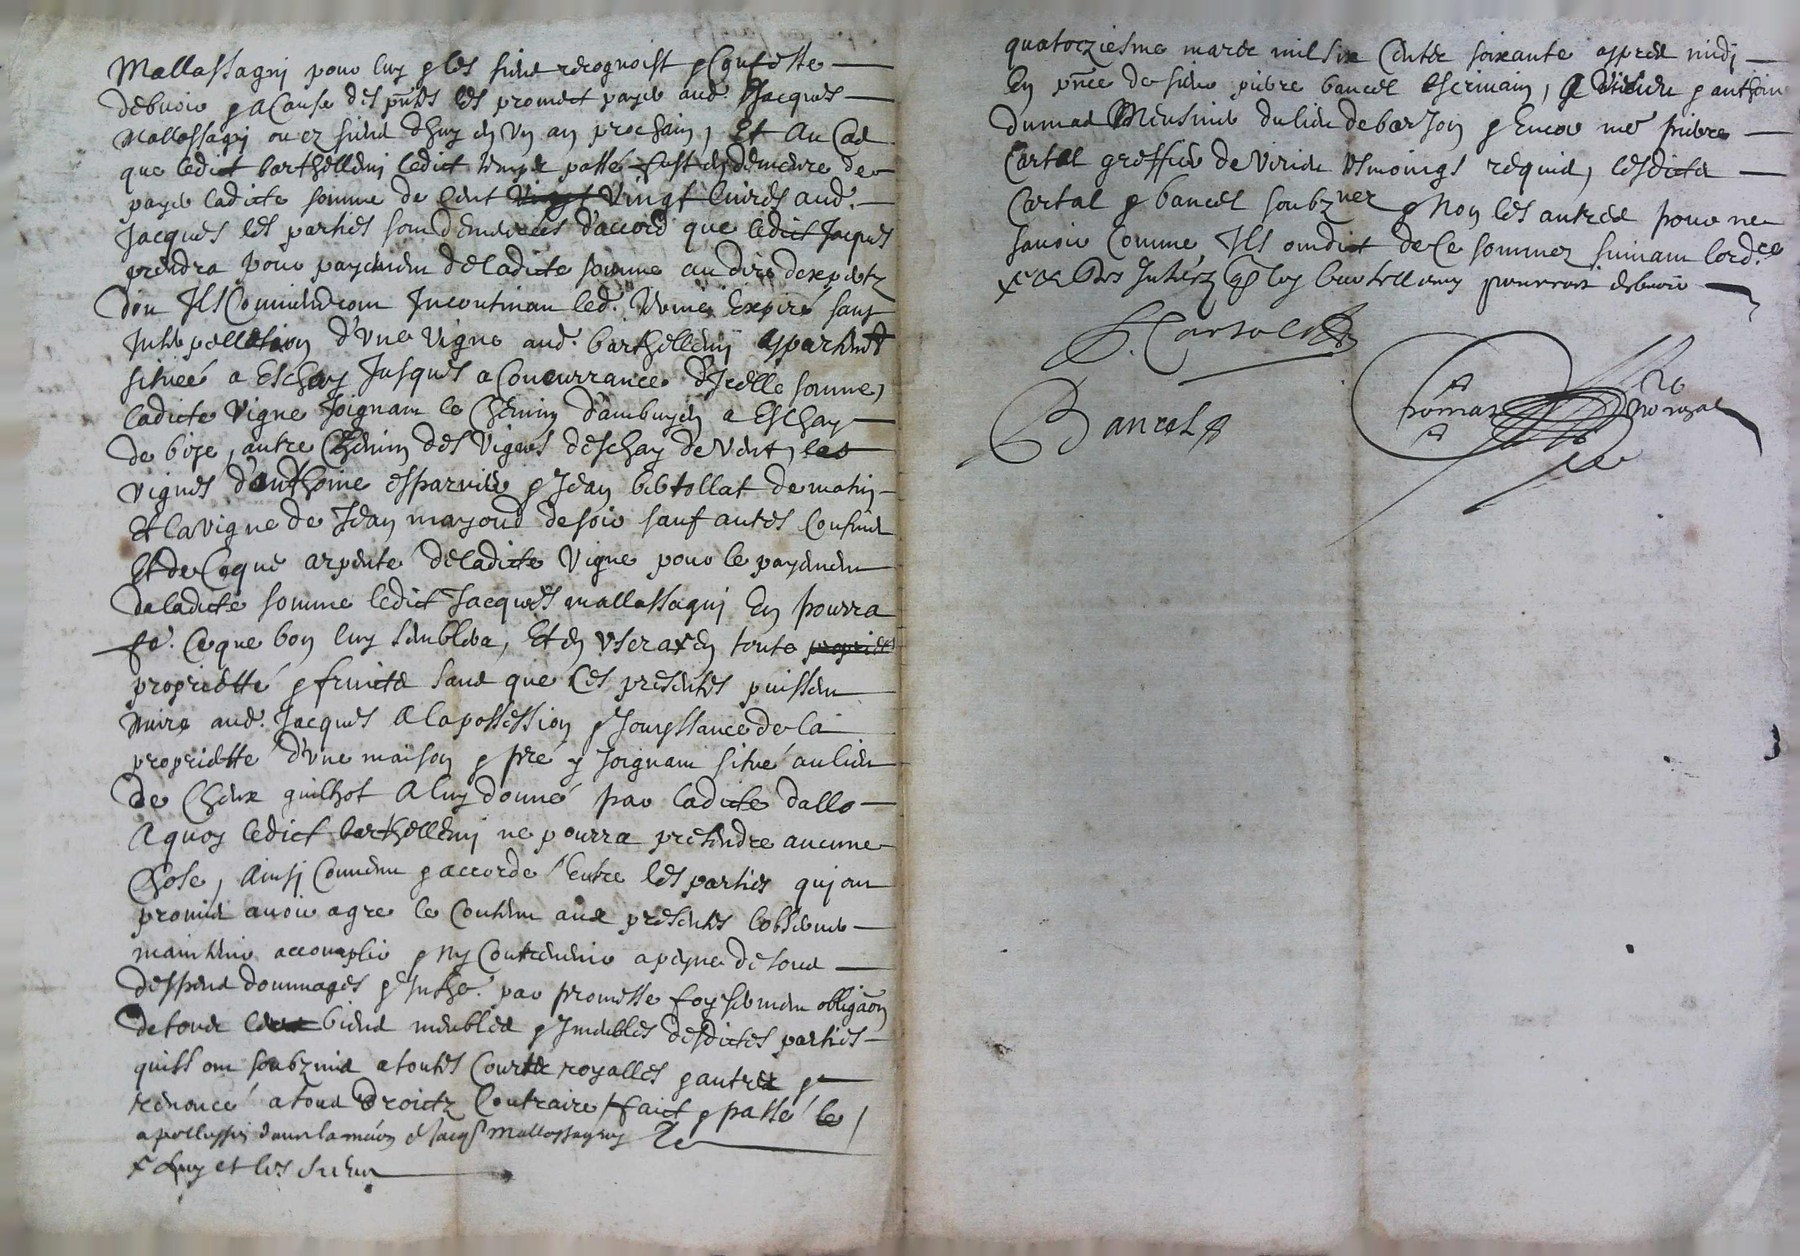 Mallassagnj pour luy & les siens recognoist & Confesse
debvoir & a Cause des pntes les promect payer aud. Jacques
Mallassagnj ou ez siens d'huy en Vn an prochain, Et Au Cas
que ledict barthellemj ledict temps passé fust en demeure de
payer ladicte somme de Cent Vingt livres aud.
Jacques les parties sont demeurées d'accord que ledict Jacques
prendra pour payement de ladicte somme au dire d'expertz
don Ils Conviendront Incontinan led. terme Expiré sans
Interpellation d'Vne Vigne aud. barthellemj appartent
situeé a Eschay Jusques a Concurrance d'Icelle somme,
ladicte Vigne Joignant le Chemin d'ambuyen a Eschay
de bize, autre Chemin des Vignes deschay de Vent, les
Vignes d'anthoine esparvier & Jean bertollat de matin
Et la vigne de Jean mayoud de soir sauf autres Confins
Et de Ce que arpente de ladicte Vigne pour le payement
de ladicte somme ledict Jacques mallassagnj En pourra
fe. Ce que bon luy semblera, Et en Vsera en toute
proprietté & fruicts sans que Ces presentes puissent
nuire aud. Jacques A la possession & Jouyssance de la
proprietté d'Vne maison & pré y Joignant situé au lieu
de Cheux guilhot A luy donné par ladicte dallo
A quoy ledict barthellemj ne pourra pretendre aucune
Chose, Ainsj Convenu & accordé Entre les parties quj ont
promis avoir agre le Contenu aux presentes l'observer
maintenir accomplir & ny Contrevenir a peyne de tous
despens dommages & Inthe. par promesse foy serment obligaon
de tous leurs biens meubles & Imeubles desdictes parties
quils ont soubzmis a toutes Cours royalles & autres &
renoncé a tous Droictz Contraire, faict & passé le
dans la maion de Jacqs Mallassagny
x luy et les siens
quatorziesme mars mil six Cents soixante appres midj
En pnce de sieur pierre bancel Escrivain, & anthoine
dumas Meusnier du lieu de barJon & Encor me pierre
Cartal greffier de Virieu tesmoings requis, lesdicts
Cartal & bancel soubznez & Non les autres pour ne
savoir Comme Ils ont dict de Ce sommez suivant lordce
x luy barthellemy pourroit debvoir
P. Cartal
Bancel
thomas nore royal